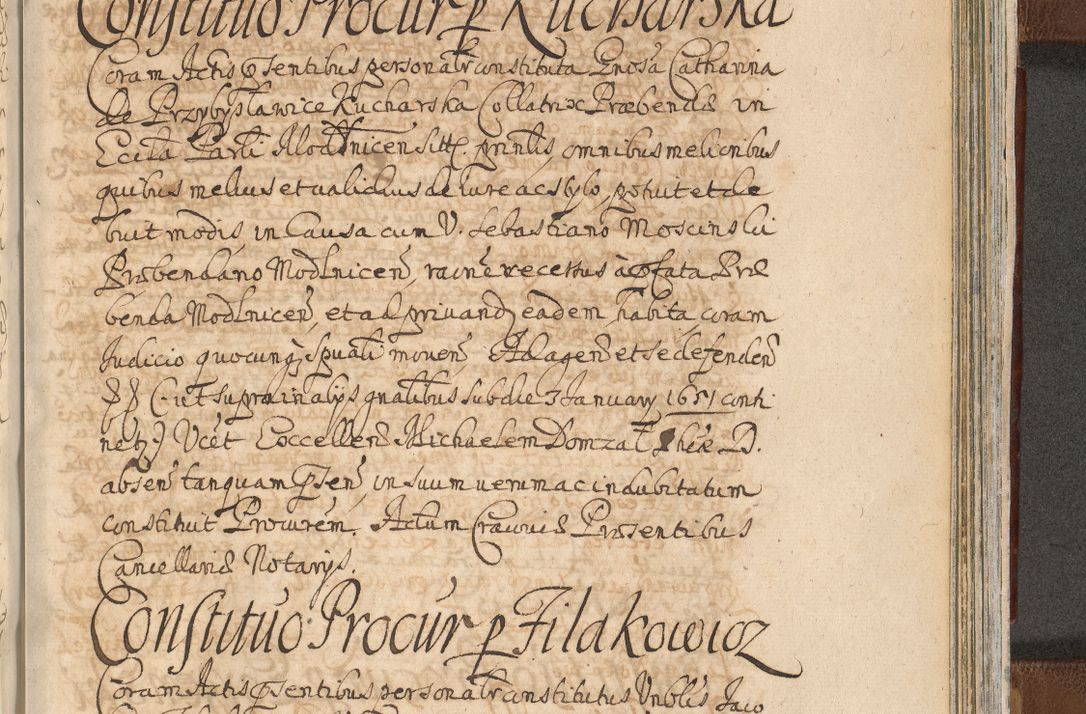 Constituo Procur p Kucharska
Coram Actis psentibus personalr constituta Gnosa Catharina
de Przybysławice Kucharska Collatrix Præbendæ in
Eccla Parli Modlnicen sitt. pnntis, omnibus melioribus
quibus melius et validius de iure ac stylo, potuit et de
buit modis, in Causa cum V. Sebastiano Moscinski
Præbendario Modlnicen, raine recessus à pfata Præ
benda Modlnicen, et ad privand eadem, habita, coram
Iudicio quocunq Spuali moven Ad agen et se defenden
(ut supra in alijs gnalibus sub die 3 January 1651 conti
netz) Vcet Excellen Michaelem Domzal Phiæ D.
absen tanquam psen, in suum verum ac indubitatum
constituit Procurem. Actum Cracoviæ Præsentibus
Cancellariæ Notarijs.
Constituo Procur p Filakowicz
Coram Actis psentibus personalr constitutus Vnblis Iaco